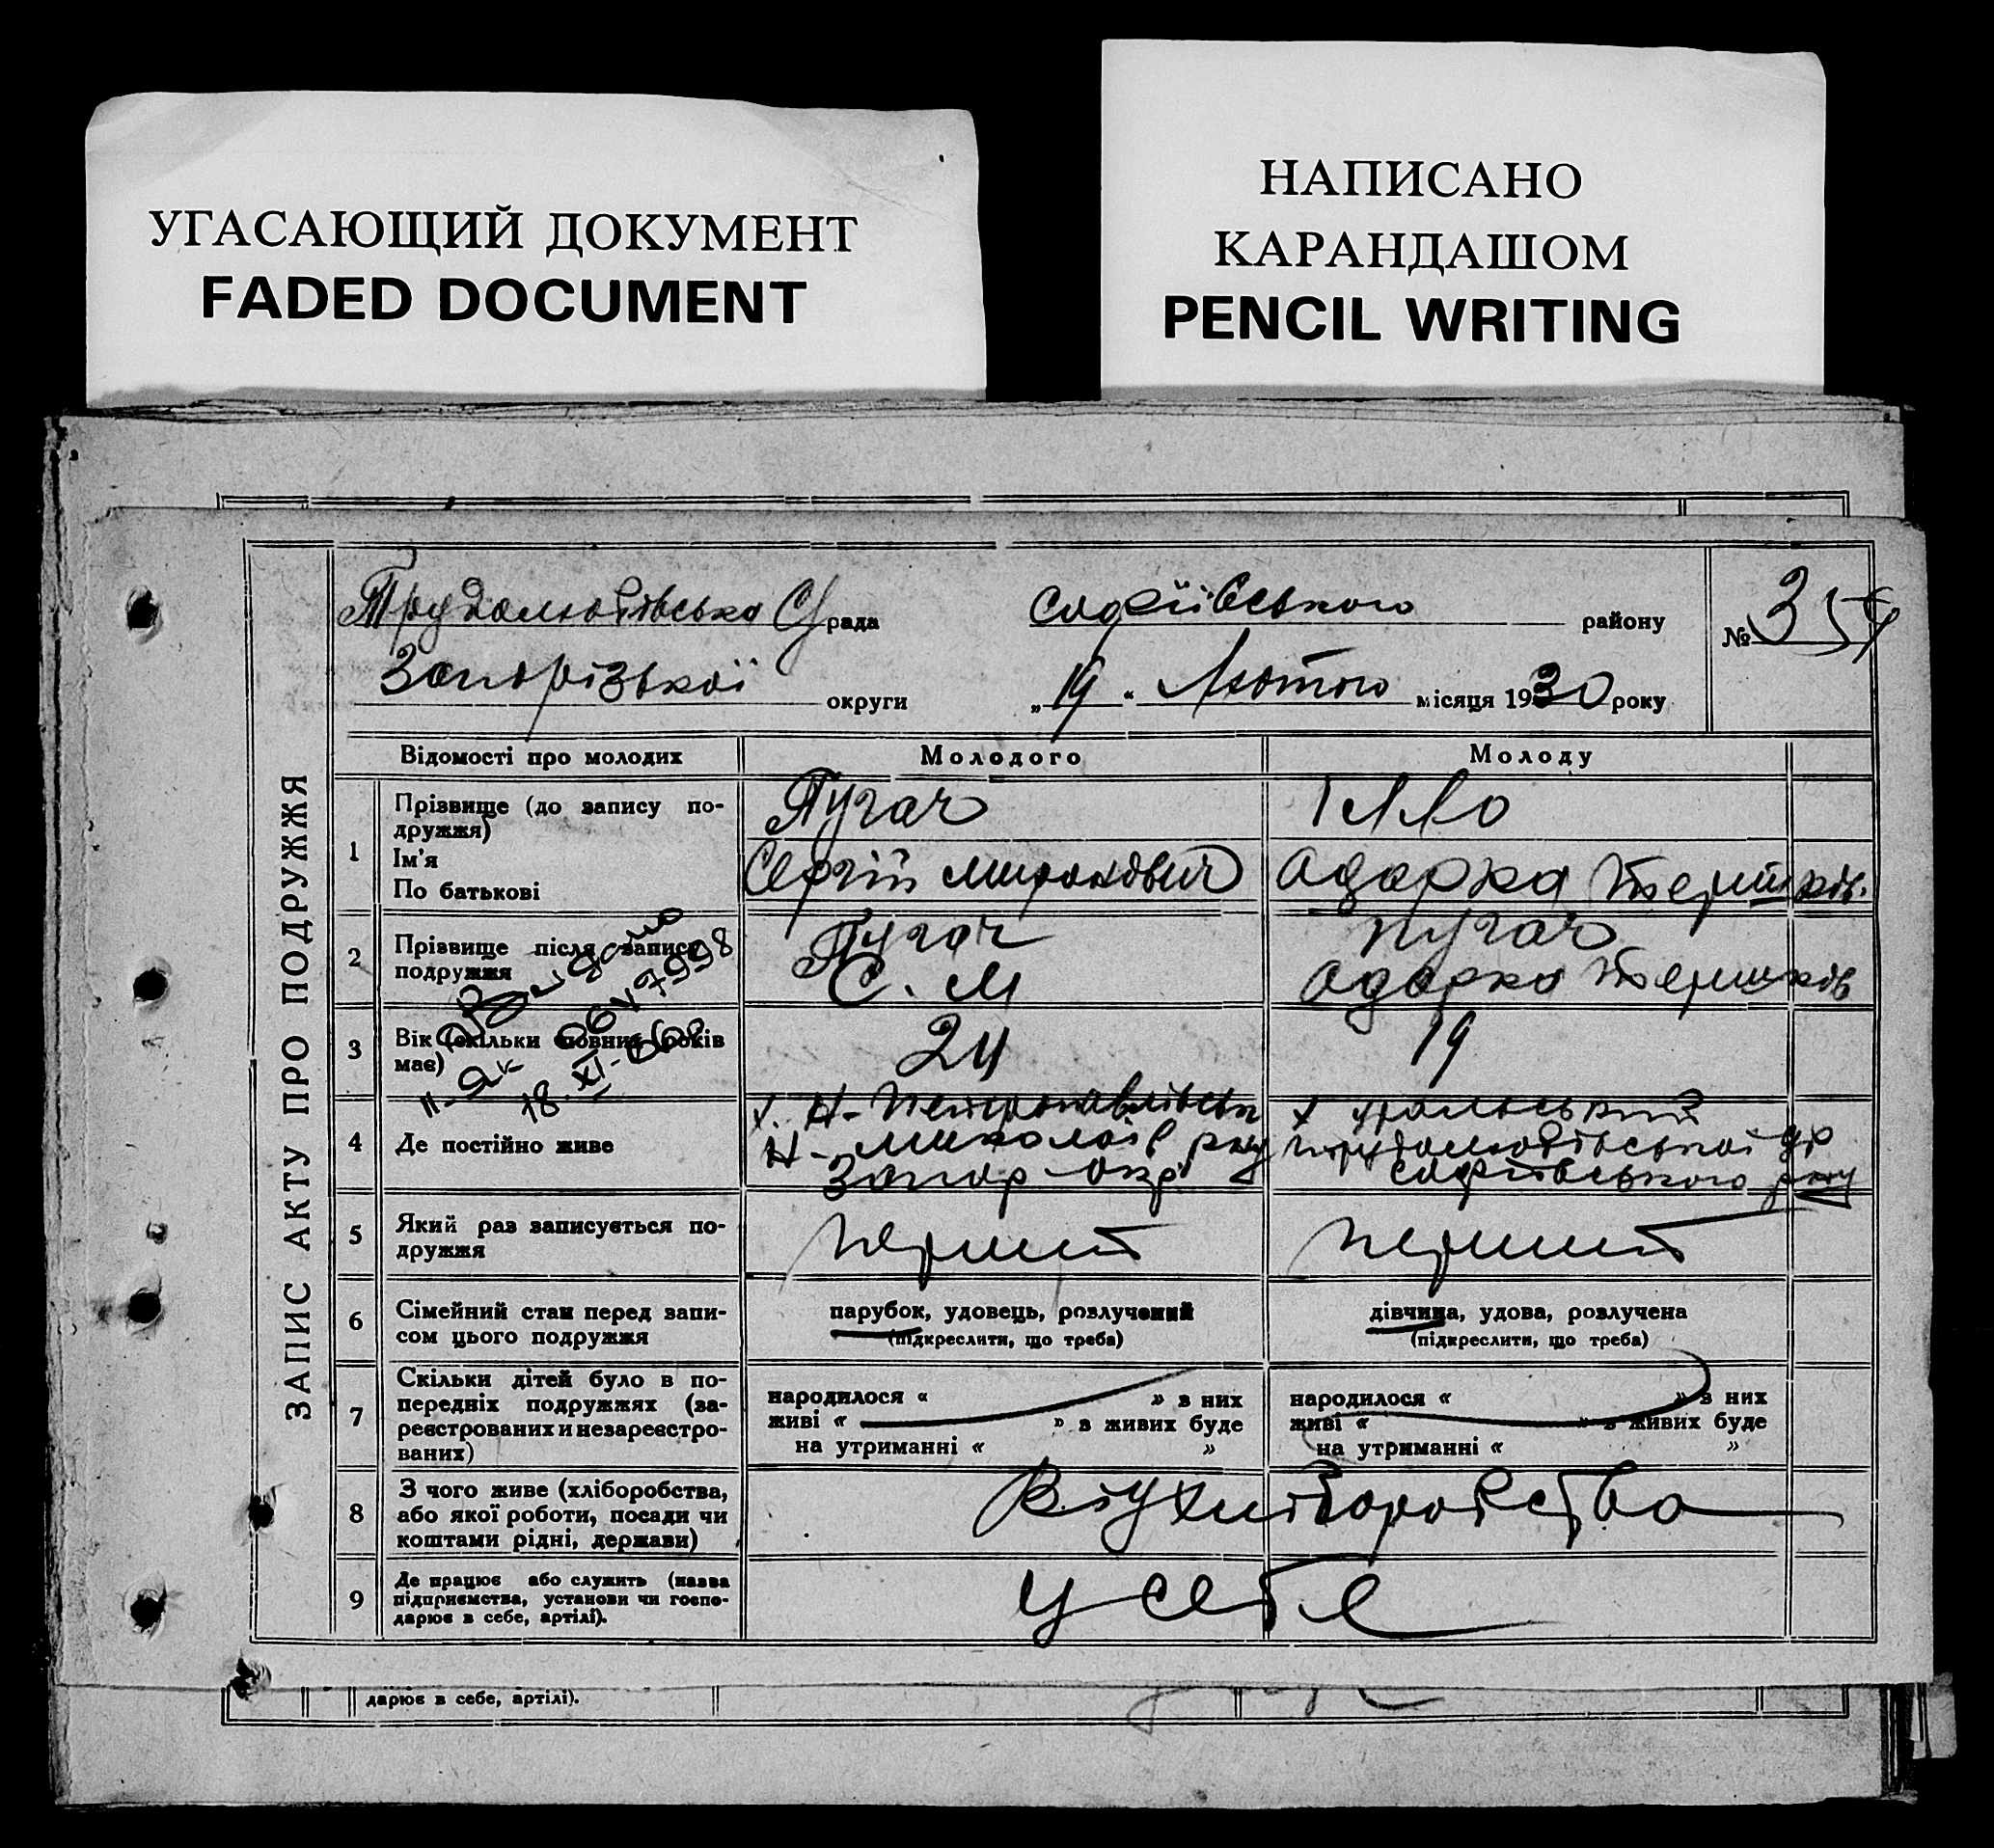 УГАСАЮЩИЙ ДОКУМЕНТ
FADED DOCUMENT
НАПИСАНО
КАРАНДАШОМ
PENCIL WRITING
ЗАПИС АКТУ ПРО ПОДРУЖЖЯ
Трудолюбівська С/рада Софіївського району
№ 354
Запорізької округи „19“ Лютого місяця 1930 року
Відомості про молодих Молодого Молоду
1 Прізвище (до запису по-
дружжя)
Ім'я
По батькові
Пугач
Сергій Миронович
Одарка Терешків.
2 Прізвище після запису
подружжя
Пугач
С. М
Пугач
Одарка Терешків
3 Вік (скільки повних років
має)
24 19
18. XI-
4 Де постійно живе
х. Н-Петропавлівськ
Н-Миколаїв р-ну
Запор-окр
х Уральський
Трудолюбівської с/р
Софіївського р-ну
5 Який раз записується по-
дружжя
перший перший
6 Сімейний стан перед запи-
сом цього подружжя
парубок, удовець, розлучений
(підкреслити, що треба)
дівчина, удова, розлучена
(підкреслити, що треба)
7 Скільки дітей було в по-
передніх подружжях (за-
реєстрованих и незареєстро-
ваних)
народилося « » в них
живі « » в живих буде
на утриманні « »
народилося « » в них
живі « » в живих буде
на утриманні « »
8 З чого живе (хліборобства,
або якої роботи, посади чи
коштами рідні, держави)
хліборобства
9 Де працює або служить (назва
підприємства, установи чи госпо-
дарює в себе, артілі).
у себе
дарює в себе, артілі).